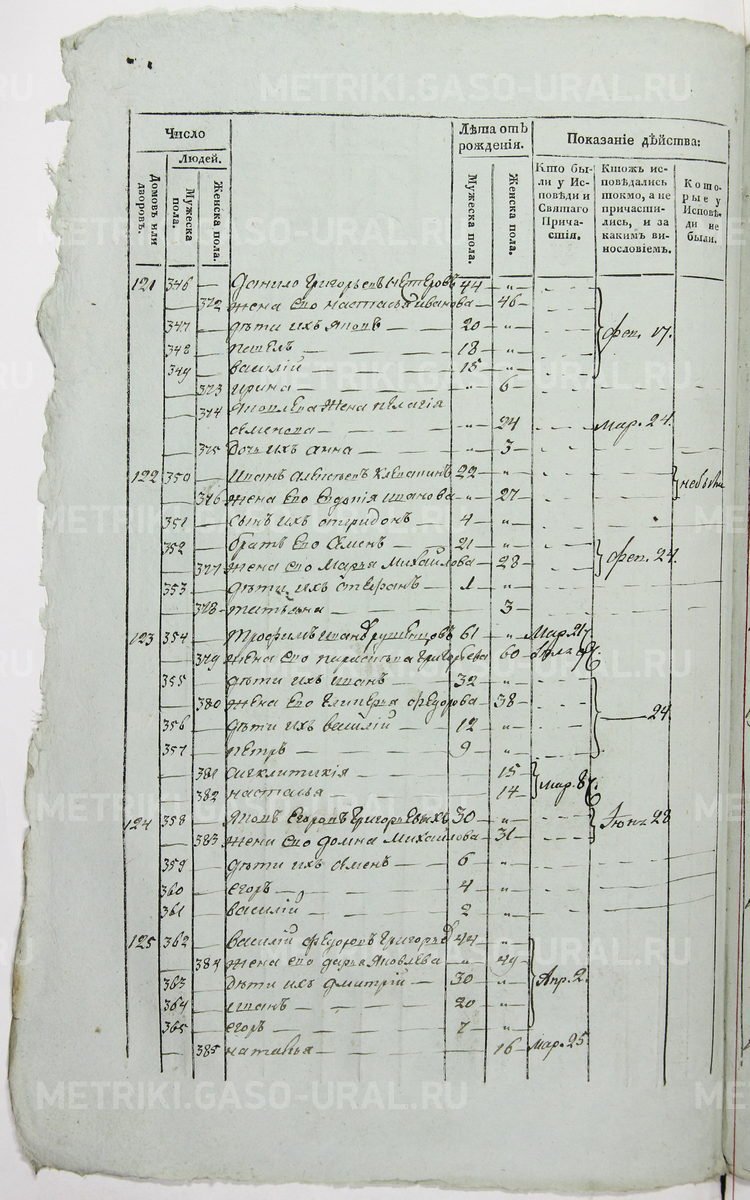 METRIKI.GASO-URAL.RU
Число
Людей.
Домовъ или дворовъ.
Мужеска пола.
Женска пола.
Лѣта отъ рожденія.
Мужеска пола.
Женска пола.
Показаніе дѣйства:
Кто были у Исповѣди и Святаго Причастія.
Ктожъ исповѣдались токмо, а не причастились, и за какимъ винословіемъ.
Которые у Исповѣди не были.
121 346 — Данило Григорьевъ 44 — „
372 жена его настасья иванова — 46
347 — дѣти ихъ Яковъ — 20 — „ фев. 17.
348 — 18 — „
349 — василій — 15 — „
373 ирина — „ 6
374 жена пелагія
семенова — „ 24 мар. 24.
375 Дочь ихъ анна — „ 3
122 350 — Иванъ 22 — „
376 жена его Евдокія иванова — „ 27
351 — сынъ ихъ спиридонъ — 4 — „
352 — братъ его семенъ — 21 — „ фев. 24.
377 жена его Марья Михайлова — 28
353 — дѣти ихъ стефанъ — 1 — „
378 татьяна — 3
123 354 — Трофимъ 61 — „ Мар. 27.
379 жена его параскева Григорьева 60
355 — дѣти ихъ иванъ — 32 — „
380 жена его гликерья федорова — 38 — 24.
356 — дѣти ихъ василій — 12 — „
357 — петръ — 9 — „
381 сигклитикія — 15
382 настасья — 14 мар.
124 358 — Яковъ Егоровъ Григорьевыхъ 30 — „ 28
383 жена его домна Михайлова — 31
359 — дѣти ихъ семенъ — 6 — „
360 — егоръ — 4 — „
361 — василій — 2 — „
125 362 — василій федоровъ 44 — „
384 жена его дарья Яковлева — „ 49
363 — дѣти ихъ дмитрій — 30 — „ Апр. 2.
364 — иванъ — 20 — „
365 — егоръ — 7 — „
385 наталья — 16 мар. 25.